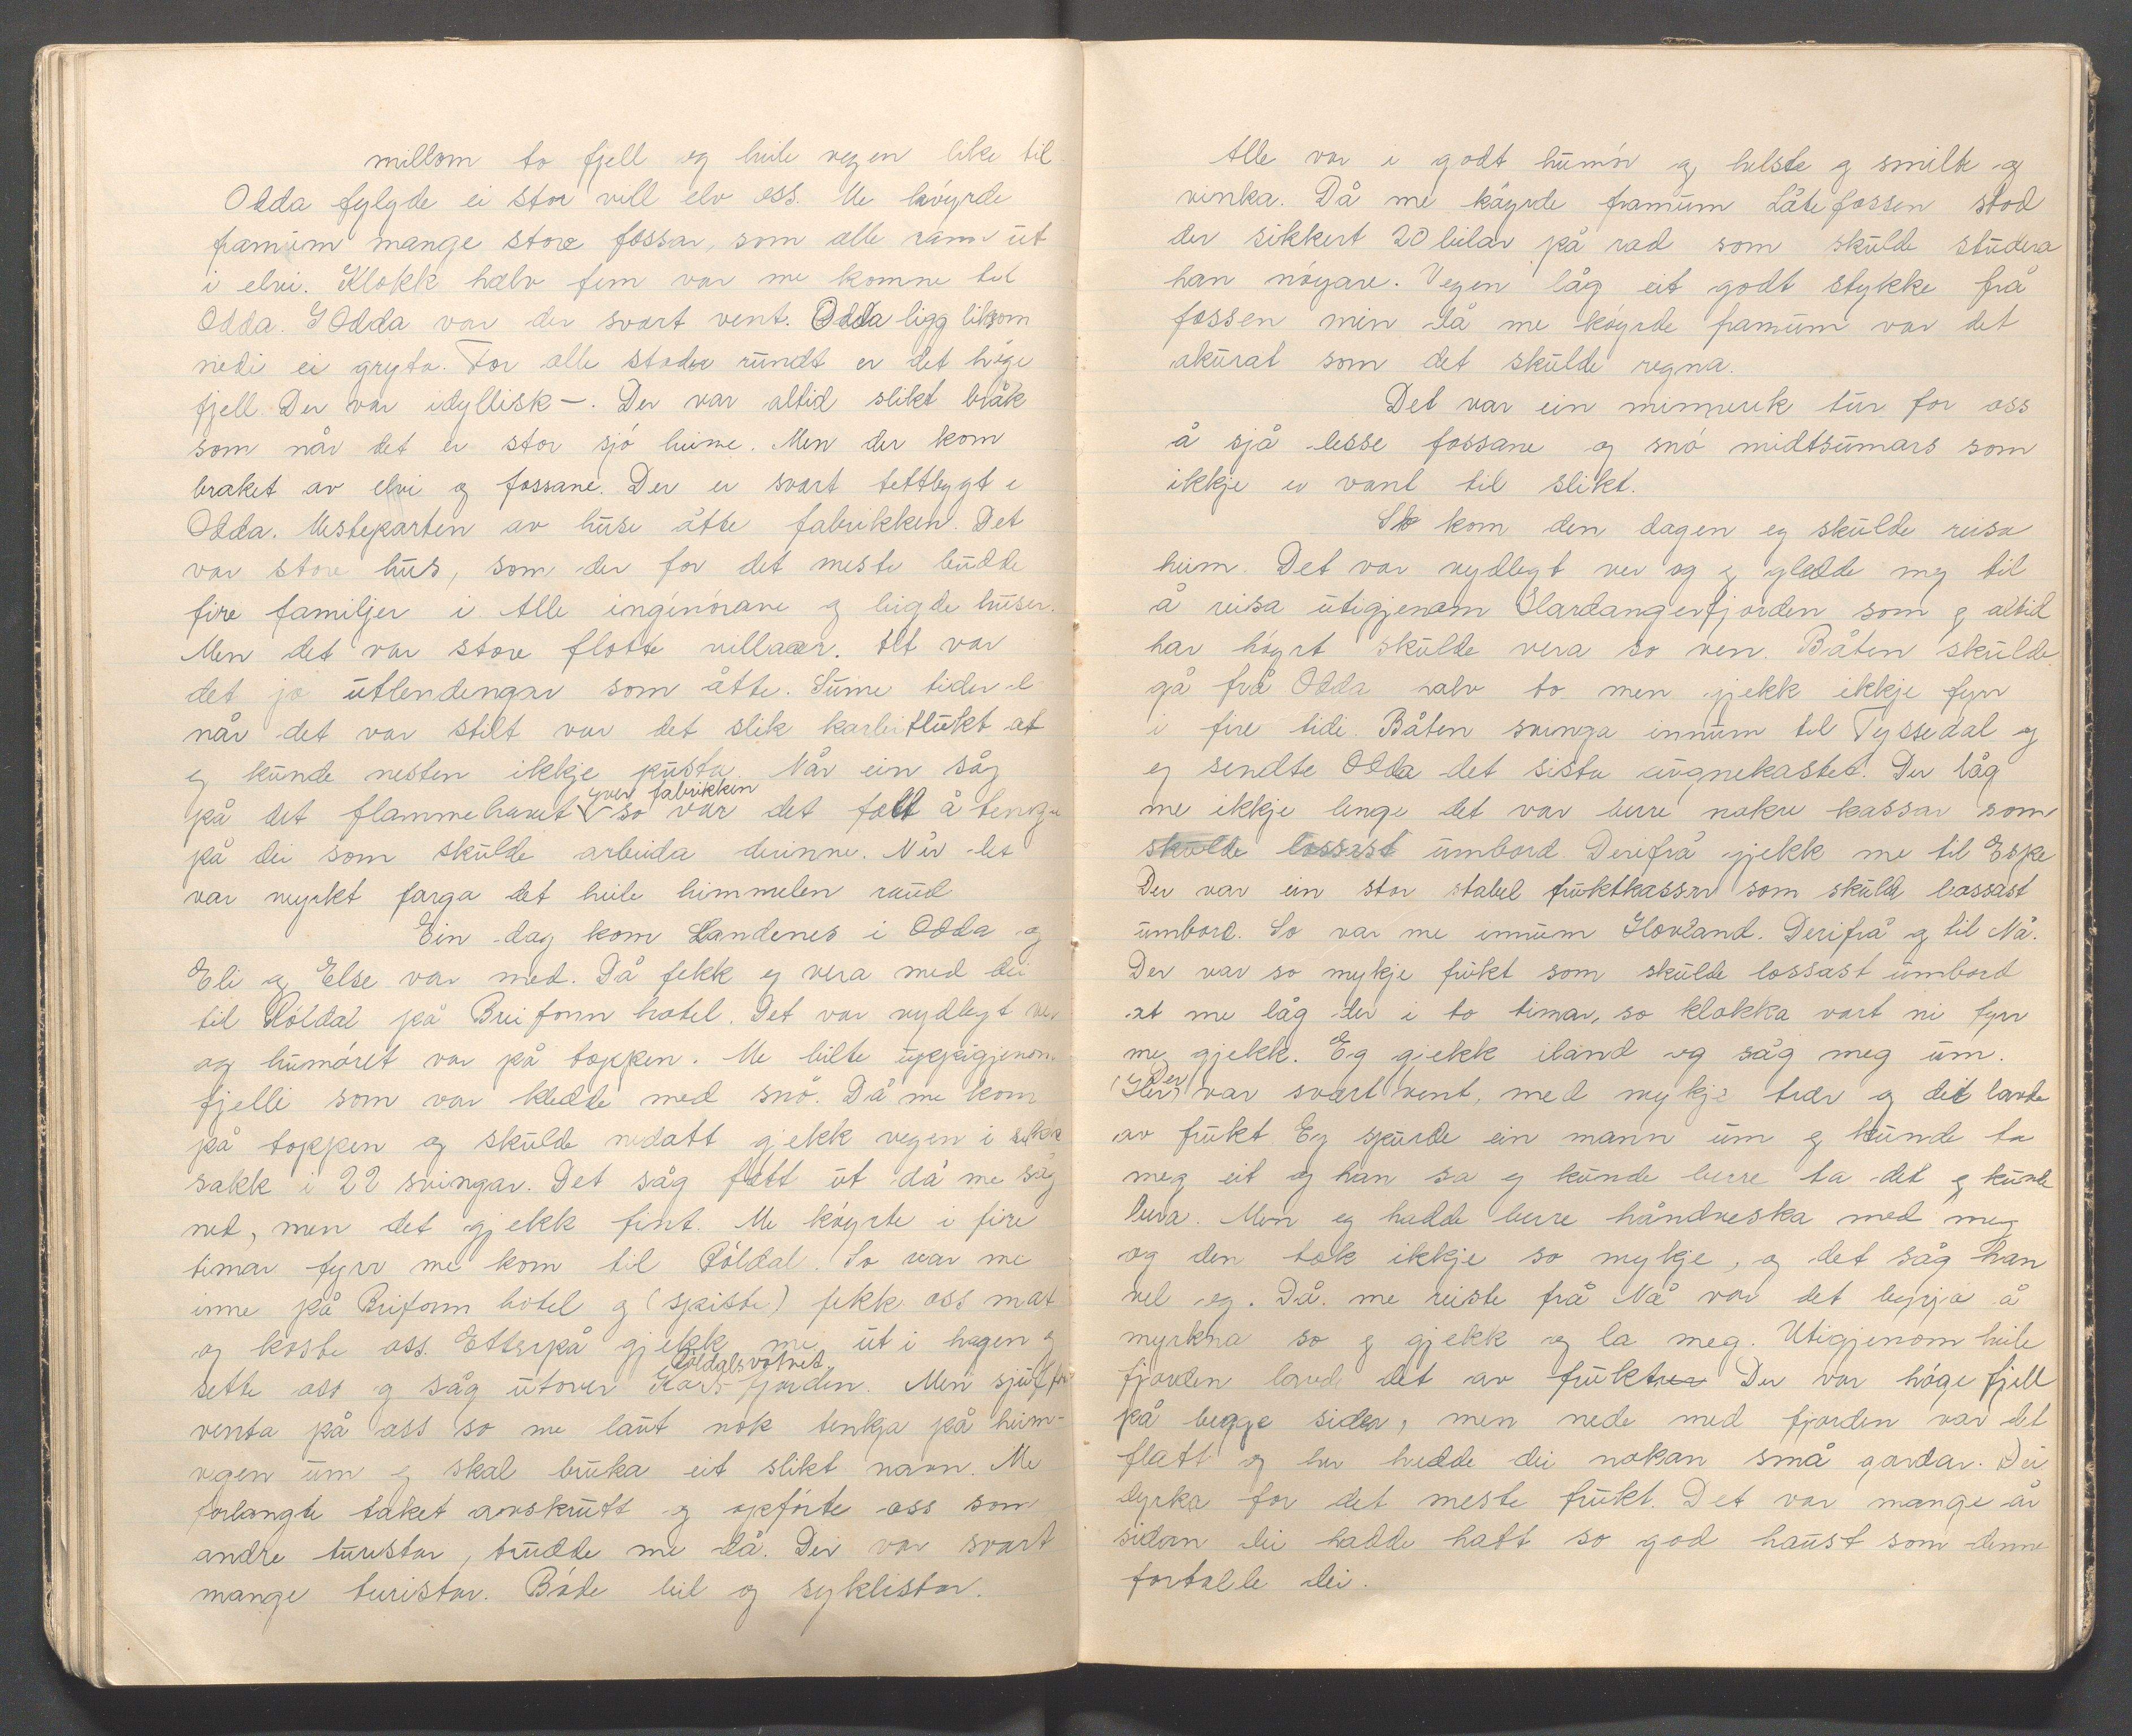 millom to fjell og heile vegen like til
Odda fylgde ei stor vill elv oss. Me köyrde
framum mange store fossar, som alle rann ut
i elvi. Klokk halv fem var me komne til
Odda. I Odda var der svært vent. Odda ligg liksom
nedi ei gryta. For alle stader rundt er det höge
fjell. Der var idyllisk —. Der var altid slikt bråk
som når det er stor sjó heime. Men der kom
braket av elvi og fossane. Der er svært tettbygt i
Odda. Mesteparten av husi åtte fabrikken. Det
var store hus, som der for det meste budde
fire familjer i. Alle ingeniórane og leigde huser.
Men det var store flotte villaer. Alt var
det jo utlendingar som åtte. Sume tider
når det var stilt var det slik karbitlukt at
eg kunde nesten ikkje pusta. Når ein såg
på det flammehavet yver fabrikken so var det fælt å tenkja
på dei som skulde arbeida derinne. Når det
var myrkt farga det heile himmelen raud
Ein dag kom Landenes i Odda og
Eli og Else var med. Då fekk eg vera med dei
til Röldal på Breifonn hotel. Det var nydlegt ver
og humöret var på toppen. Me bilte uppigjenom
fjelli som var kledde med snö. Då me kom
på toppen og skulde nedatt gjekk vegen i sikk
sakk i 22 svingar. Det såg fælt ut då me såg
ned, men det gjekk fint. Me köyrte i fire
timar fyrr me kom til Röldal. So var me
inne på Breifonn hotel og (spiste) fekk oss mat
og koste oss. Etterpå gjekk me ut i hagen og
sette oss og såg utover Röldalsvatnet. fjorden. Men sjåfören
venta på oss so me laut nok tenkja på heim-
vegen um eg skal bruka eit slikt navn. Me
forlangte taket avskrutt og opförte oss som
andre turistar, trudde me då. Der var svært
mange turistar. Både bil og syklistar.
Alle var i godt humör og helste og smilte og
vinka. Då me köyrde framum Låtefossen stod
der sikkert 20 bilar på rad som skulde studera
han nöyare. Vegen låg eit godt stykke frå
fossen men då me köyrde framum var det
akurat som det skulde regna.
Det var ein minnerik tur for oss
å sjå desse fossane og snó midtsumars som
ikkje er vant til slikt.
So kom den dagen eg skulde reisa
heim. Det var nydlegt ver og eg gledde meg til
å reisa utigjenom Hardangerfjorden som eg altid
har höyrt skulde vera so ven. Båten skulde
gå frå Odda halv to men gjekk ikkje fyrr
i fire tidi. Båten svinga innum til Tyssedal og
eg sendte Odda det sista augnekastet. Der låg
me ikkje lenge det var berre nokre kassar som
skulde lossast umbord. Derifrå gjekk me til Espe
Der var ein stor stabel fruktkassar som skulde lossast
umbord. So var me innum Hovland. Derifrå og til Nå.
Der var so mykje frukt som skulde lossast umbord
at me låg der i to timar, so klokka vart ni fyrr
me gjekk. Eg gjekk iland og såg meg um.
(Her) Der var svært vent, med mykje trær og det lavde
av frukt. Eg spurde ein mann um eg kunde ta
meg eit og han sa eg kunde berre ta det eg kunde
bera. Men eg hadde berre håndveska med meg
og den tok ikkje so mykje, og det såg han
vel og. Då me reiste frå Nå var det byrja å
myrkna so eg gjekk og la meg. Utigjenom heile
fjorden lavde det av frukttrær Der var höge fjell
på begge sider, men nede med fjorden var det
flatt og her hadde dei nokan små gardar. Dei
dyrka for det meste frukt. Det var mange år
sidan dei hadde hatt so god haust som denne
fortalte dei.